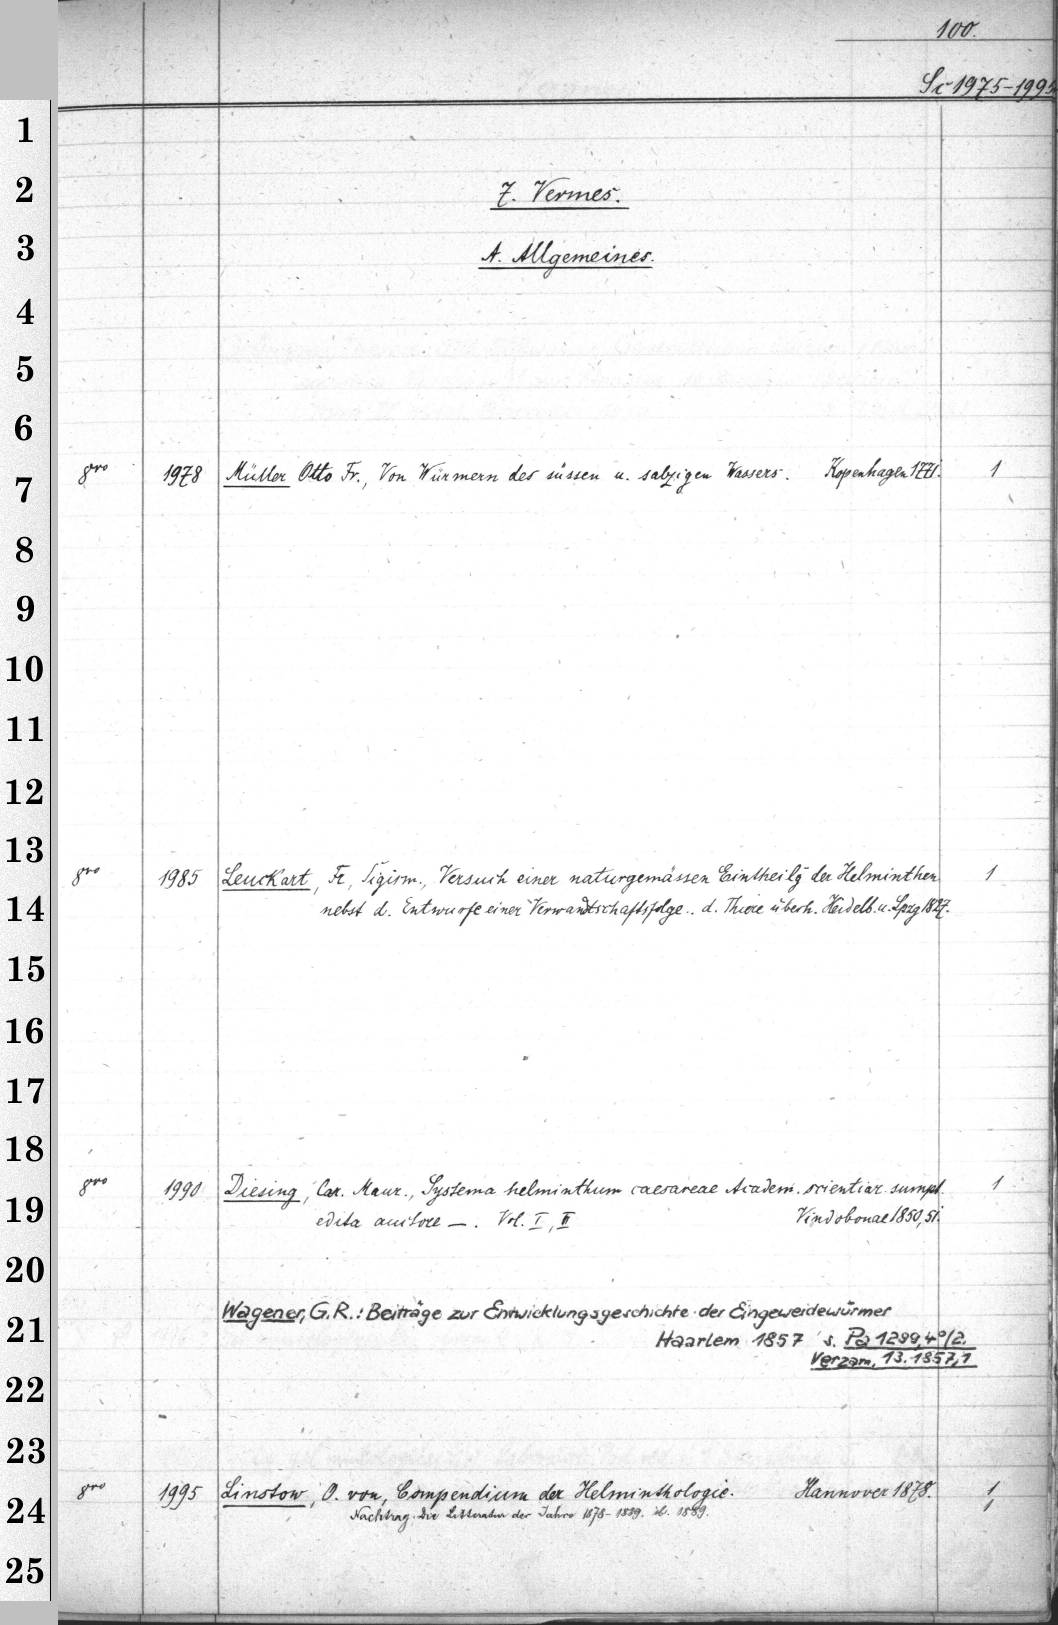 100.
Sc 1975-1995
1
2
7. Vermes.
3
A. Allgemeines.
4
5
6
8vo 1978 Müller Otto Fr., Von Würmern des süssen u. salzigen Wassers. Kopenhagen 1771. 1
7
8
9
10
11
12
13
8vo 1985 Leuckart, Fr. Sigism., Versuch einer naturgemässen Eintheilg der Helminthen 1
14 nebst d. Entwurfe einer Verwandtschaftsfolge.. d. Thiere überh. Heidelb. u. Lpzg 1827.
15
16
17
18
8vo 1990 Diesing, Car. Maur., Systema helminthum caesareae Academ. scientiar. sumpt. 1
19 edita auctore —. Vol. I, II Vindobonae 1850, 51.
20
Wagener, G.R.: Beiträge zur Entwicklungsgeschichte der Eingeweidewürmer
21 Haarlem 1857 s. Pa 1299, 4°/2.
Verzam. 13.1857,1
22
23
8vo 1995 Linstow, O. von, Compendium der Helminthologie. Hannover 1878. 1
24 Nachtrag. Die Litteratur der Jahre 1878-1889. ib. 1889. 1
25